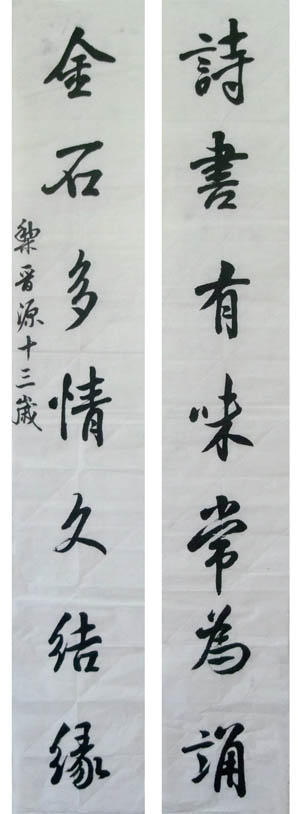 詩書有味常為誦
金石多情久結緣
黎晋源十三歲